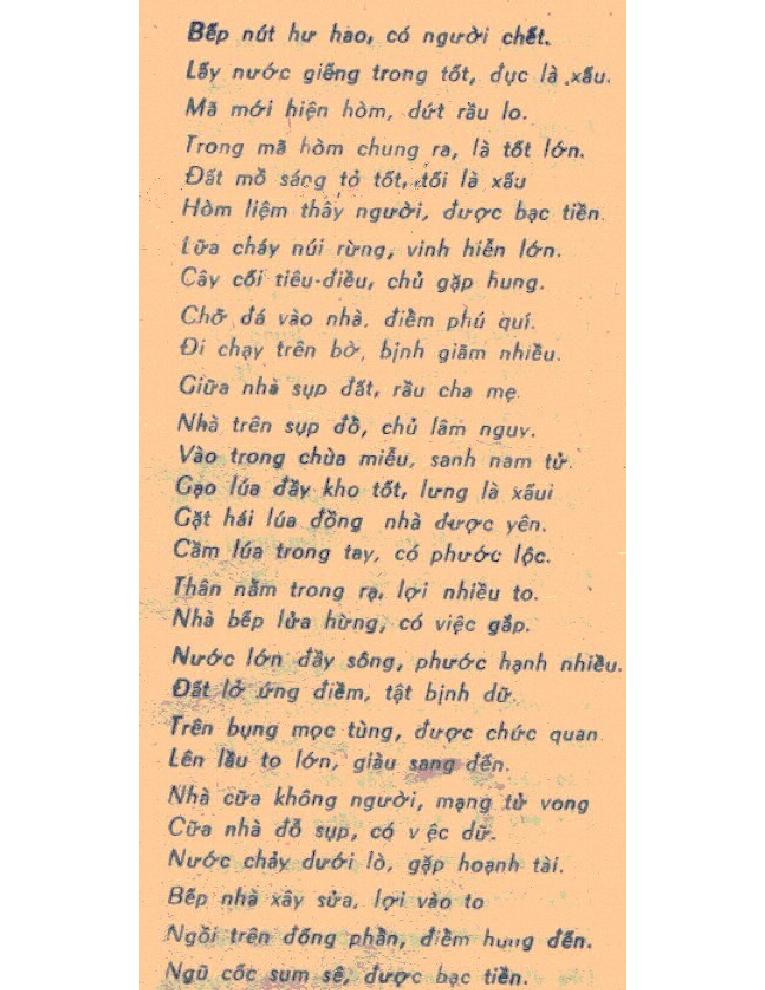 Bếp nứt hư hao, có người chết.
Lấy nước giếng trong tốt, đục là xấu.
Mã mới hiện hòm, dứt rầu lo.
Trong mã hòm chung ra, là tốt lớn.
Đất mồ sáng tỏ tốt, tối là xấu
Hòm liệm thấy người, được bạc tiền.
Lữa cháy núi rừng, vinh hiển lớn.
Cây cối tiêu-điều, chủ gặp hung.
Chở đá vào nhà, điềm phú quí.
Đi chạy trên bờ, bịnh giãm nhiều.
Giữa nhà sụp đất, rầu cha mẹ.
Nhà trên sụp đồ, chủ lâm nguy.
Vào trong chùa miễu, sanh nam tử.
Gạo lúa đầy kho tốt, lưng là xấui
Gặt hái lúa đồng nhà được yên.
Cầm lúa trong tay, có phước lộc.
Thân nằm trong rạ, lợi nhiều to.
Nhà bếp lửa hừng, có việc gấp.
Nước lớn đầy sông, phước hạnh nhiều.
Đất lở ứng điềm, tật bịnh dữ.
Trên bụng mọc tùng, được chức quan.
Lên lầu to lớn, giàu sang đến.
Nhà cữa không người, mạng tử vong
Cữa nhà đỗ sụp, có v ệc dữ.
Nước chảy dưới lò, gặp hoạnh tài.
Bếp nhà xây sửa, lợi vào to
Ngồi trên đống phần, điềm hung đến.
Ngũ cốc sum sê, được bạc tiền.